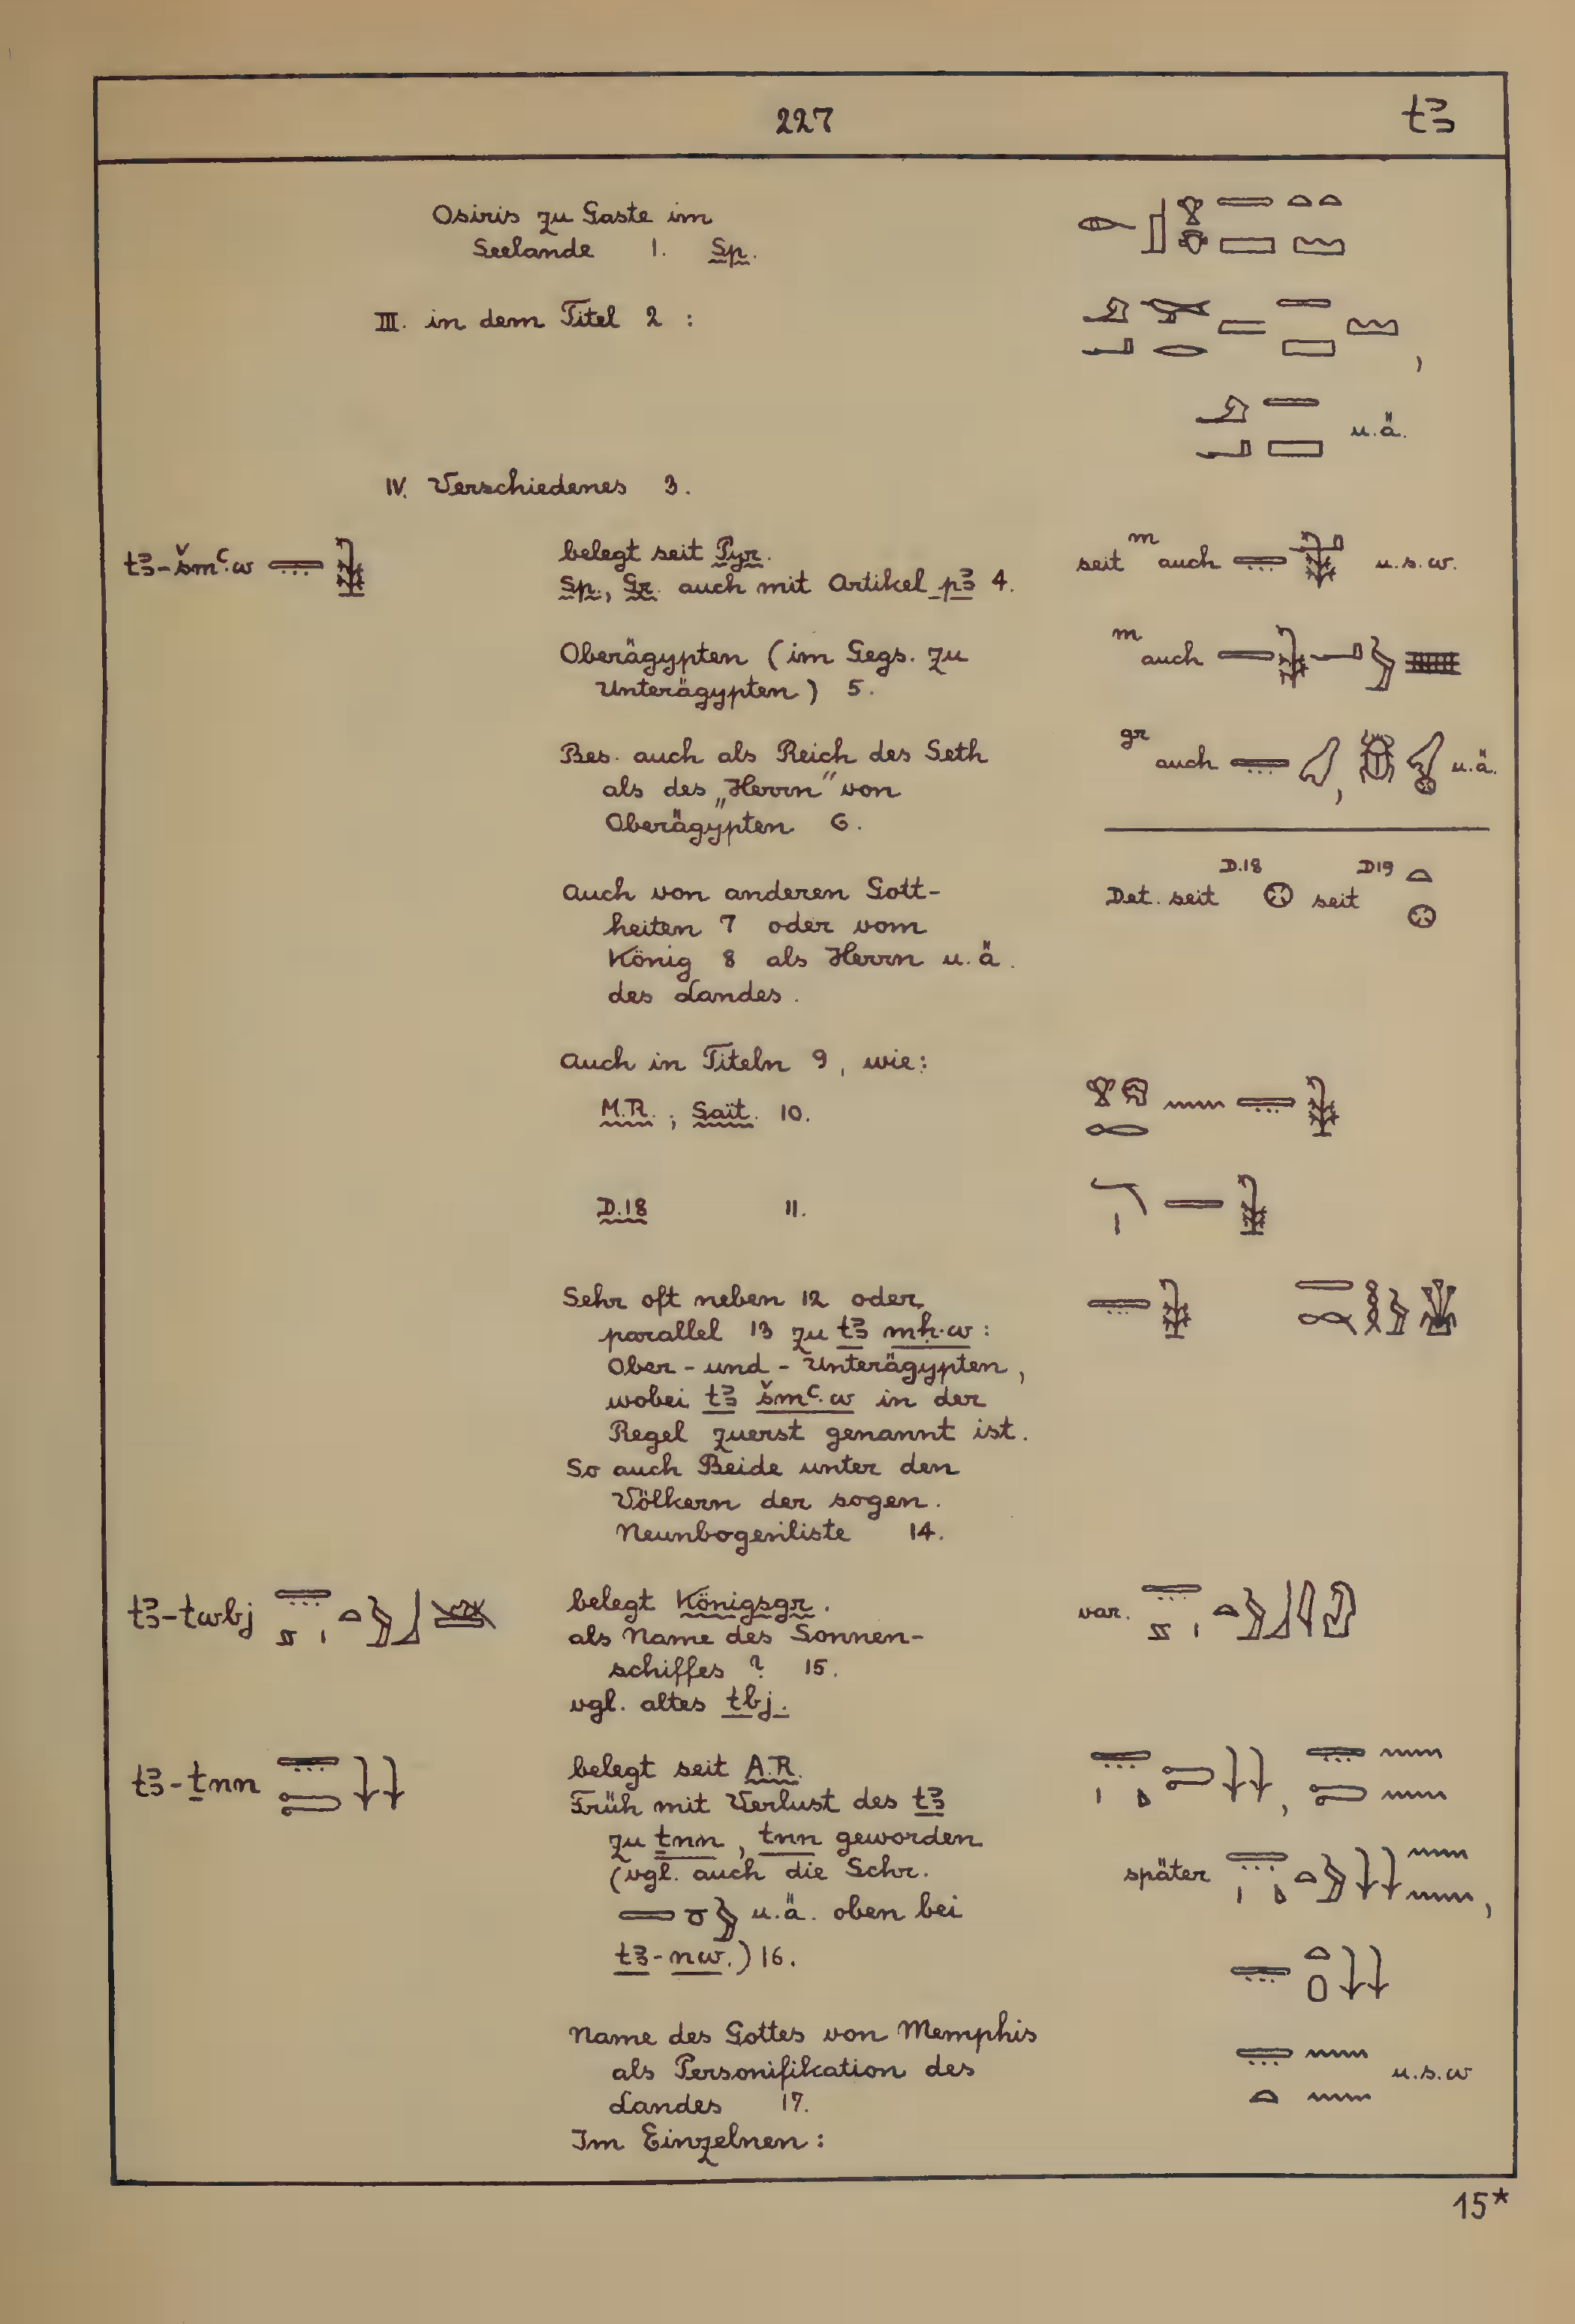 227 tꜣ
Osiris zu Gaste im
Seelande 1. Sp.
III. in dem Titel 2 :
u.ä.
IV. Verschiedenes 3.
tꜣ-šmꜥ.w
belegt seit Pyr.
Sp., Gr. auch mit Artikel pꜣ 4.
seit m auch u.s.w.
Oberägypten (im Gegs. zu
Unterägypten) 5.
m auch
Bes. auch als Reich des Seth
als des „Herrn" von
Oberägypten 6.
gr auch , u.ä.
Auch von anderen Gott-
heiten 7 oder vom
König 8 als Herrn u.ä.
des Landes.
Det. seit D.18 seit D19
Auch in Titeln 9, wie:
M.R.; Saït. 10.
D.18 11.
Sehr oft neben 12 oder
parallel 13 zu tꜣ mḥ.w :
Ober-und-Unterägypten,
wobei tꜣ šmꜥ.w in der
Regel zuerst genannt ist.
So auch Beide unter den
Völkern der sogen.
Neunbogenliste 14.
tꜣ-twbj
belegt Königsgr.
als Name des Sonnen-
schiffes ? 15.
vgl. altes tbj.
var.
tꜣ-ṯnn
belegt seit A.R.
Früh mit Verlust des tꜣ
zu ṯnn, tnn geworden
(vgl. auch die Schr.
u.ä. oben bei
tꜣ-nw.) 16.
später
Name des Gottes von Memphis
als Personifikation des
Landes 17.
u.s.w
Im Einzelnen:
15*